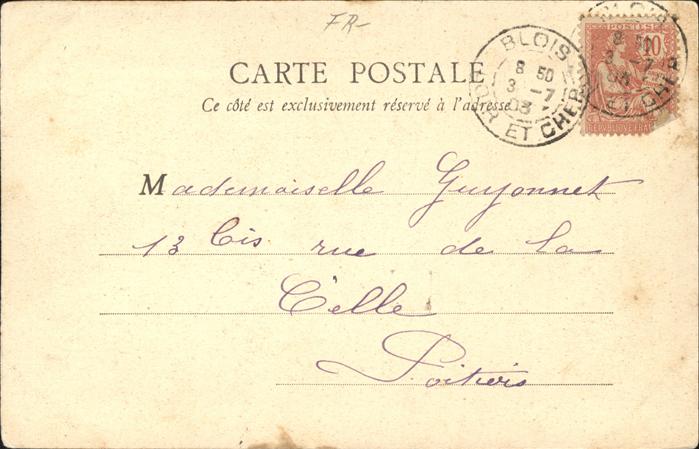 FR-
CARTE POSTALE
Ce côté est exclusivement réservé à l'adresse
BLOIS
8 50
3 -7
03
LOIR ET CHER
BLOIS
8 50
3 -7
03
ET CHER
POSTES
10
Mademoiselle Guyonnet
13 bis rue de la
Celle
Poitiers